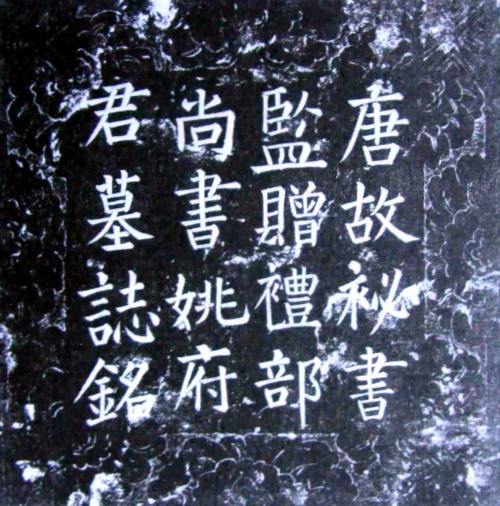 唐故祕書
監贈禮部
尚書姚府
君墓誌銘